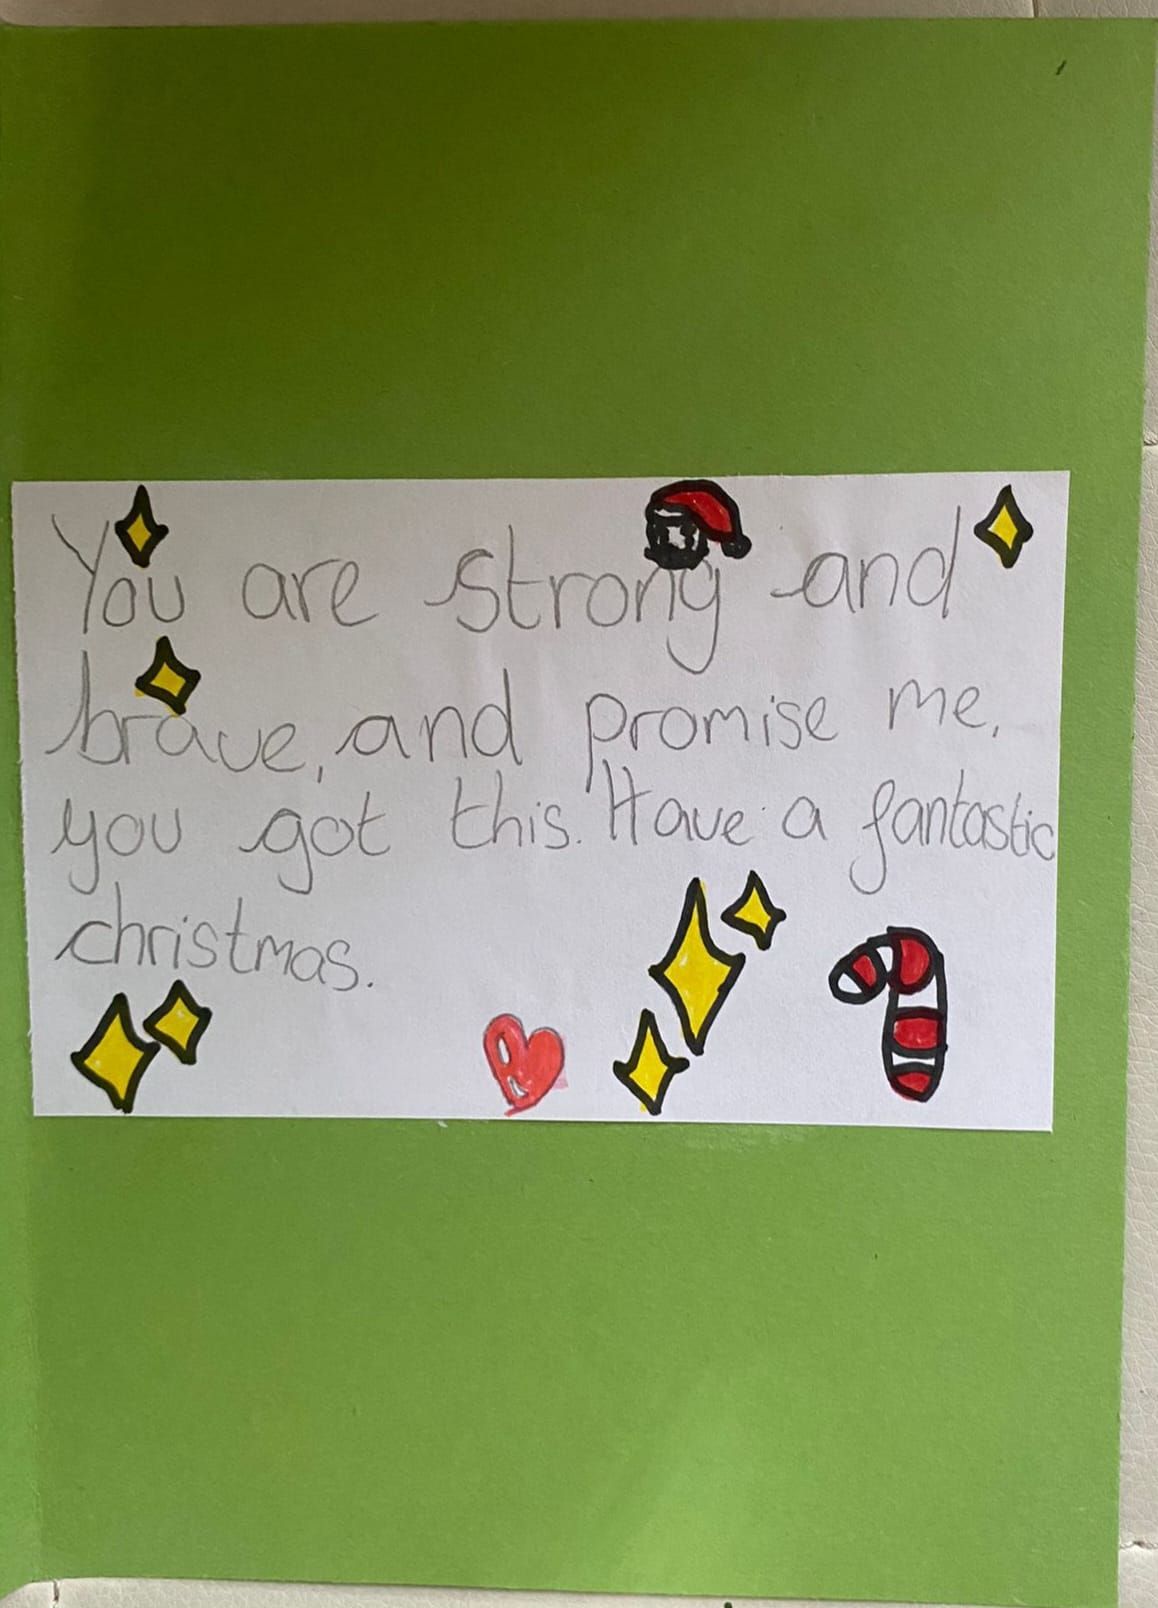 You are strong and
brave, and promise me,
you got this. Have a fantastic
christmas.